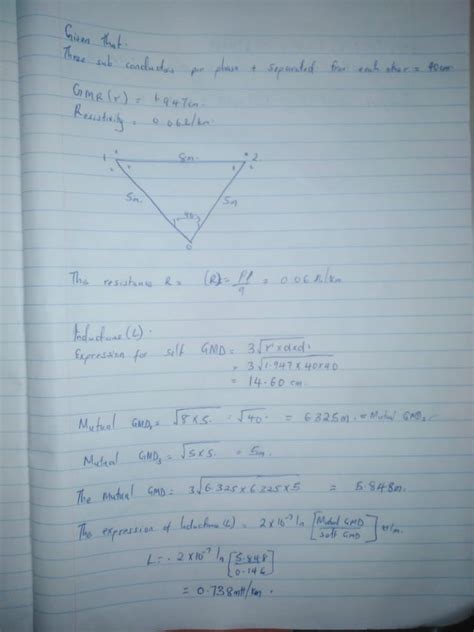 Given that.
Three sub conductors per phase + separated from each other = 40cm
GMR(r') = 1.947cm.
Resistivity = 0.06Ω/km.
1 8m. 2
5m 5m
40
0
The resistance R = (R) = ρl/a = 0.06Ω/km
Inductance (L).
Expression for self GMD = 3√r'×d×d'
= 3√1.947×40×40
= 14.60 cm.
Mutual GMD₁ = √8×5. = √40. = 6.325m. = Mutual GMD₂
Mutual GMD₃ = √5×5 = 5m.
The mutual GMD = 3√6.325×6.325×5 = 5.848m.
The expression of Inductance (L) = 2×10⁻⁷ ln [Mutual GMD / self GMD] H/m.
L = . 2×10⁻⁷ ln [5.848 / 0.146]
= 0.738mH/km.